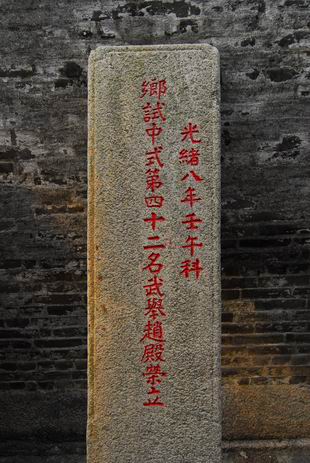 光緒八年壬午科
鄉試中式第四十二名武舉趙殿榮立